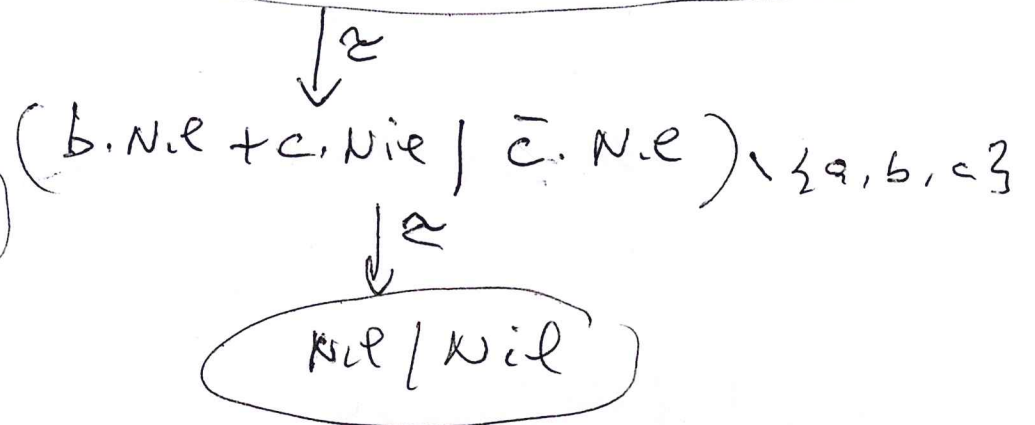 ↓τ
(b.Nil + c.Nil | c̄.Nil)∖{a,b,c}
↓τ
Nil | Nil